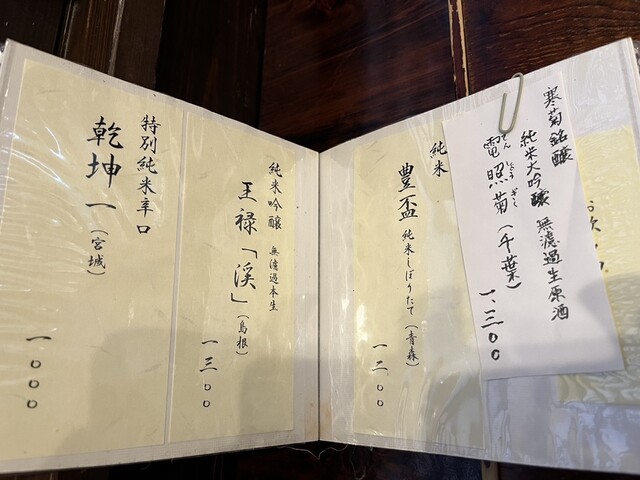 寒菊銘醸
純米大吟醸 無濾過生原酒
電照菊(千葉)
でんしょうぎく
一、三〇〇
純米
豊盃 純米しぼりたて(青森)
一二〇〇
純米吟醸 無濾過本生
王禄「渓」(島根)
一三〇〇
特別純米辛口
乾坤一(宮城)
一〇〇〇